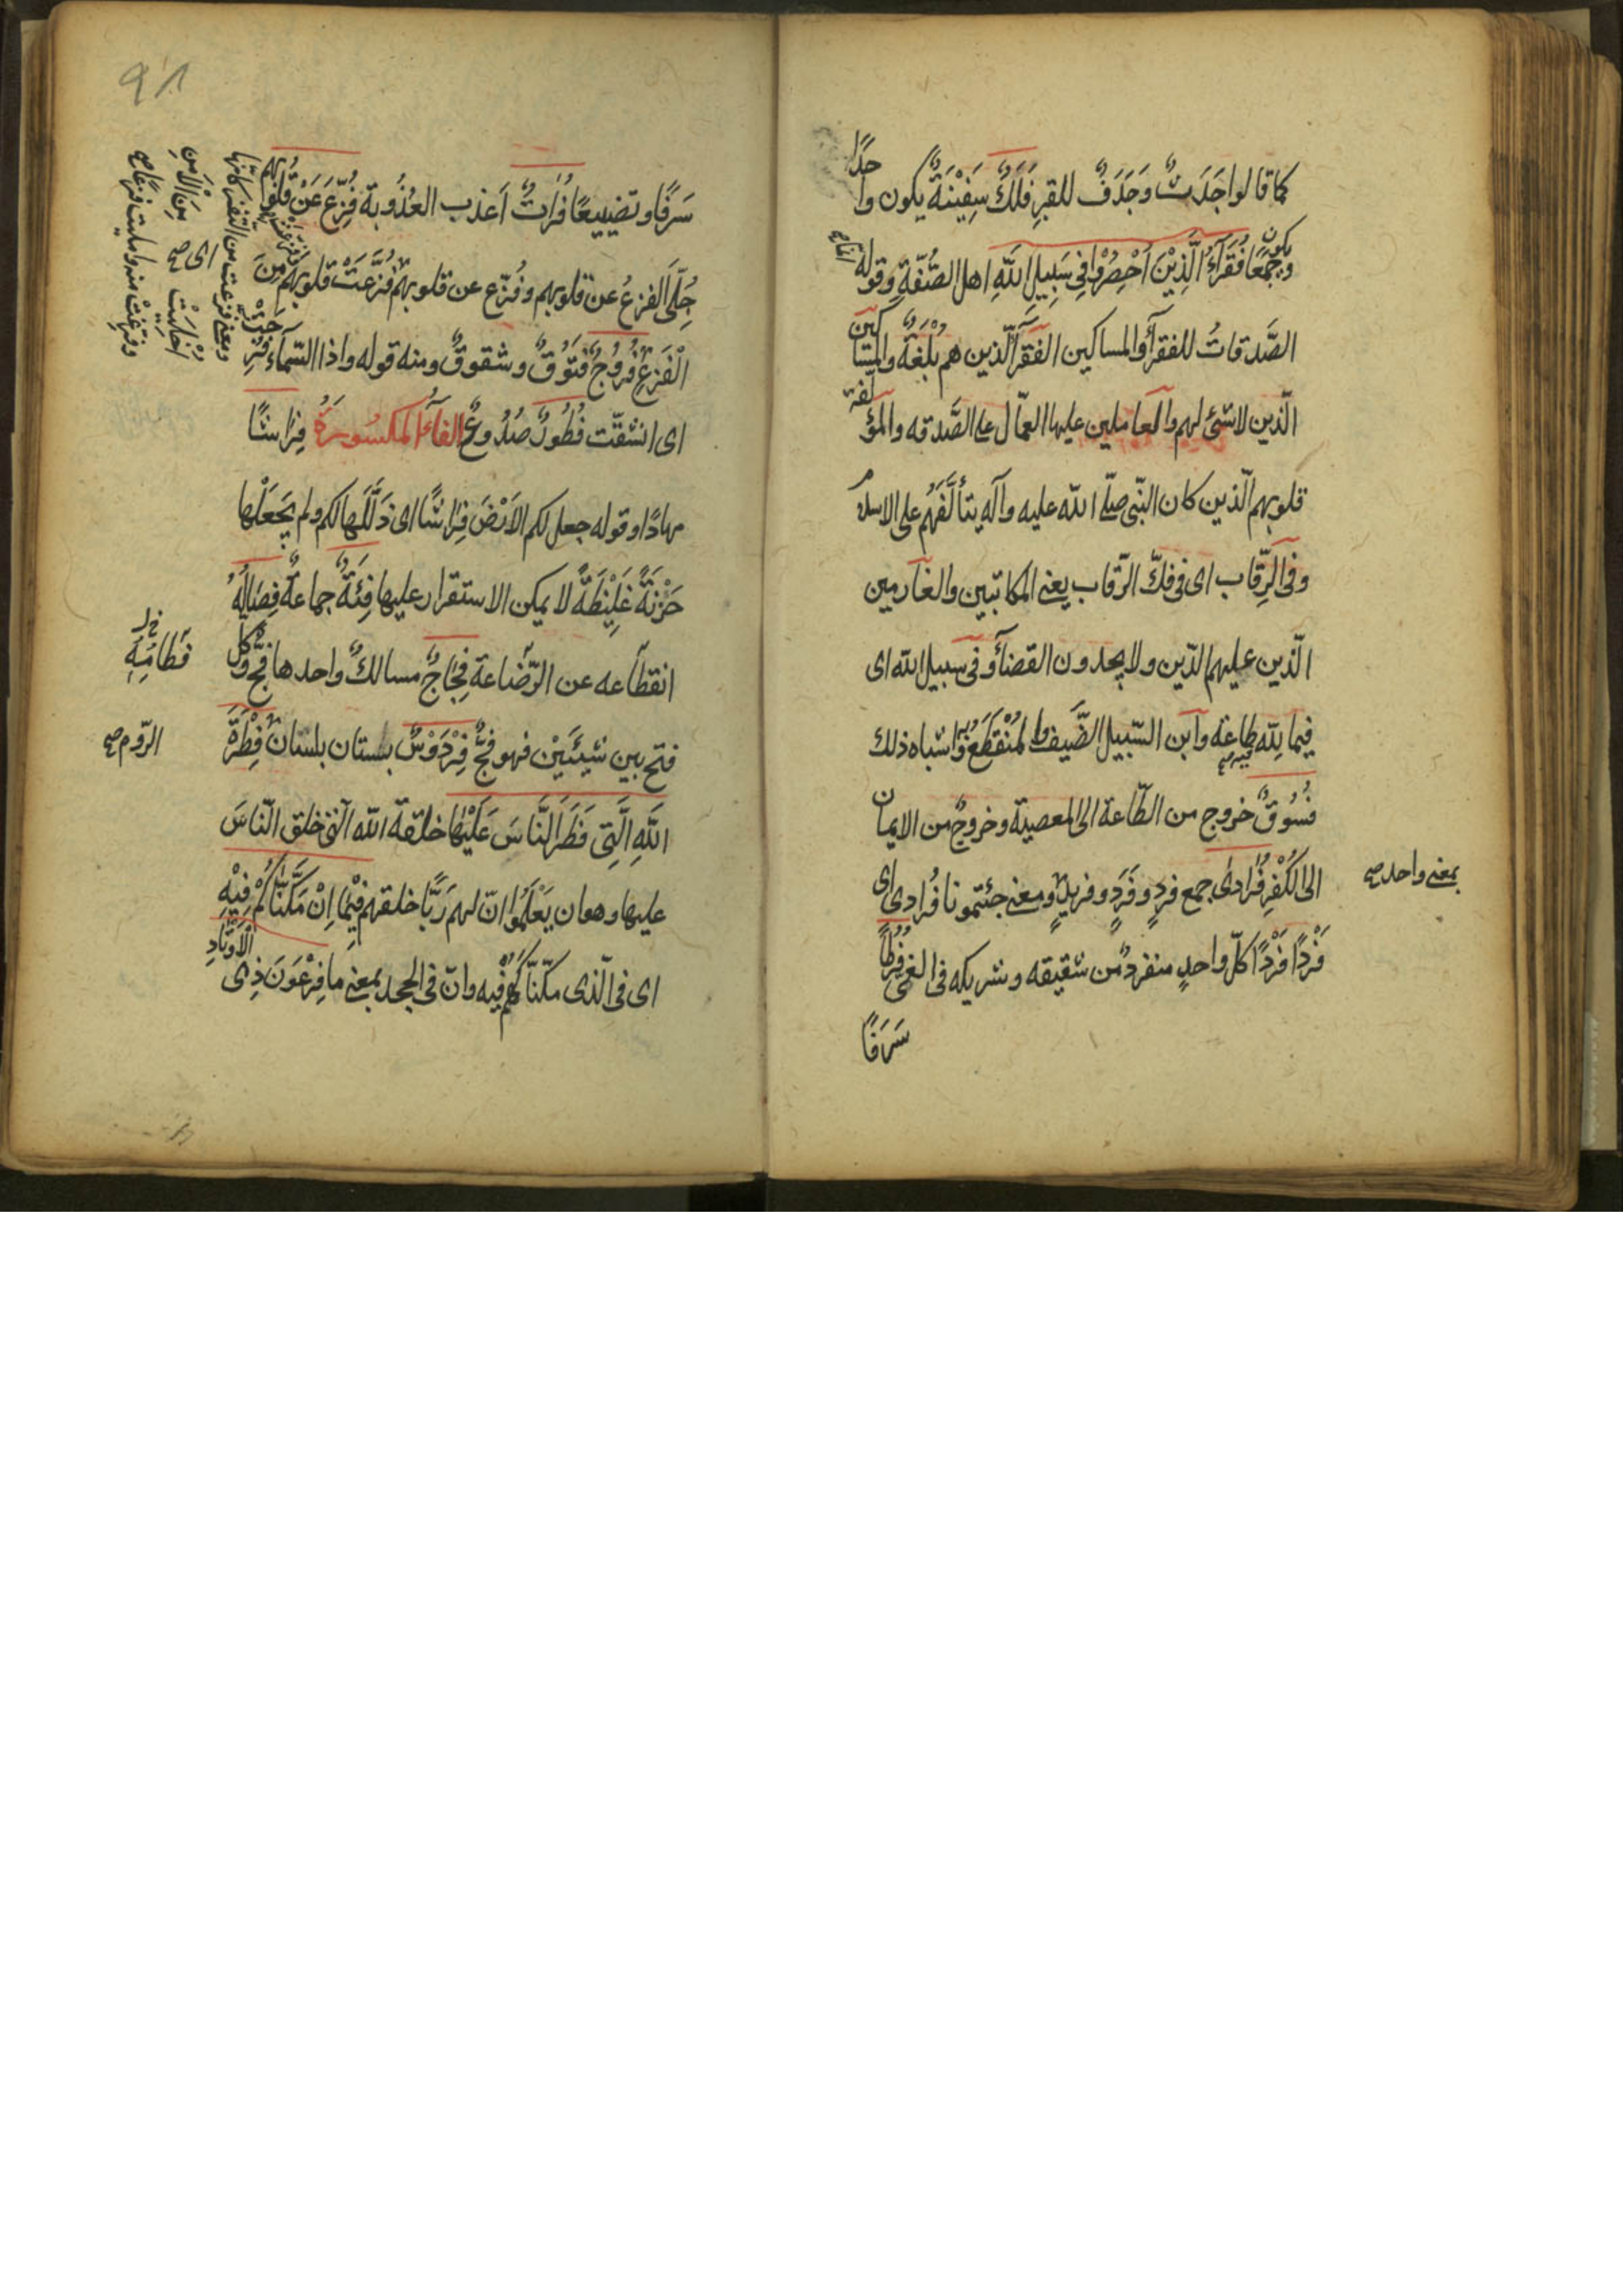 كما قالوا جَدَثٌ وَجَدَفٌ للقبرِ فُلْكٌ سَفِيْنَةٌ يكون واحدًا
ويكون جَمْعًا فُقَرَآءُ الَّذِيْنَ اُحْصِرُوْا فِي سَبِيلِ اللّٰهِ اهل الصُّفّةِ وقوله انما
الصَّدقاتُ للفقرآء والمساكين الفقرآء الّذين هم بُلْغَةٌ والمساكين
الّذين لاشئ لهم والعاملين عليها العمّال على الصَّدقه والمؤلّفة
قلوبهم الّذين كان النّبى صلّى اللّه عليه وآله يتألَّفُهُم على الاسلام
وفى الرِّقاب اى فى فكّ الرّقاب يعنى المكاتبين والغارمين
الّذين عليهم الدّين ولا يجدون القضآء وفى سبيل اللّه اى
فيما للّه فيه طاعة وابن السّبيل الضَّيف والمُنْقَطَعُ به واشباه ذلك
فُسُوقٌ خروج من الطّاعة الى المعصية وخروج من الايمان
الى الكُفْرِ فُرَادىٰ جمع فردٍ وفَرَدٍ وفريدٍ ومعنى جئتمونا فُرادى اى
بمعنى واحد صح
فَرْدًا فَرْدًا كلّ واحدٍ منفرد من شقيقه وشريكه فى الغى فُرُطًا
سَرَفًا
٩٨
سَرَفًا وتضييعًا فُرَاتٌ اَعذب العُذُوبة فُزِّعَ عَنْ قُلُوبِهِم
جُلِّىَ الفزعُ عن قلوبهم وفُزّع عن قلوبهم فُزِّعَتْ قلوبهم مِنَ
الْفَزَعِ فُرُوجٌ فُتُوقٌ وشقوقٌ ومنه قوله واذا السّماء فُرِجَتْ
اى انشقّت فُطُورٌ صُدُوعٌ الفآءُ المكسُورَةُ فِرَاشًا
مهادًا وقوله جعل لكم الاَرْضَ فِرَاشًا اى ذَلَّلَها لكم ولم يَجعَلْها
حَزْنَةً غَلِيْظَةً لا يمكن الاستقرار عليها فِئَةٌ جماعةٌ فِصَالُهُ
فِطامُهُ
انقطاعه عن الرّضاعة فِجَاجٌ مسالكٌ واحدها فجٌّ وكل
فتح بين شيئَيْن فهو فجٌّ فِرْدَوْسٌ بستان بلسان فِطْرَةَ
الرّوم صح
اللّٰهِ الَّتِى فَطَرَ النَّاسَ عَلَيْهَا خلقة اللّه الّتى خلق النّاسَ
عليها وهو ان يَعْلَمُوا انّ لهم رَبًّا خلقهم فِيْمَا اِنْ مَكَّنَّاكُمْ فِيْهِ
اى فى الّذى مكّنّاكم فيه وان فى الجحد بمعنى ما فِرْعَوْنَ ذِى الْاَوْتَادِ